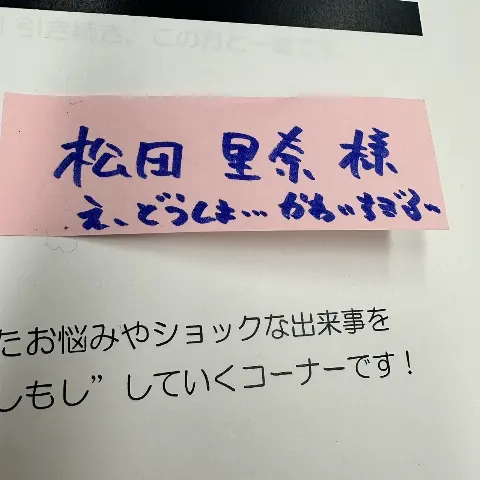 引き続き、この方と一緒です。
松田 里奈 様
え、どうしよ… かわいすぎる…
たお悩みやショックな出来事を
しもし”していくコーナーです！